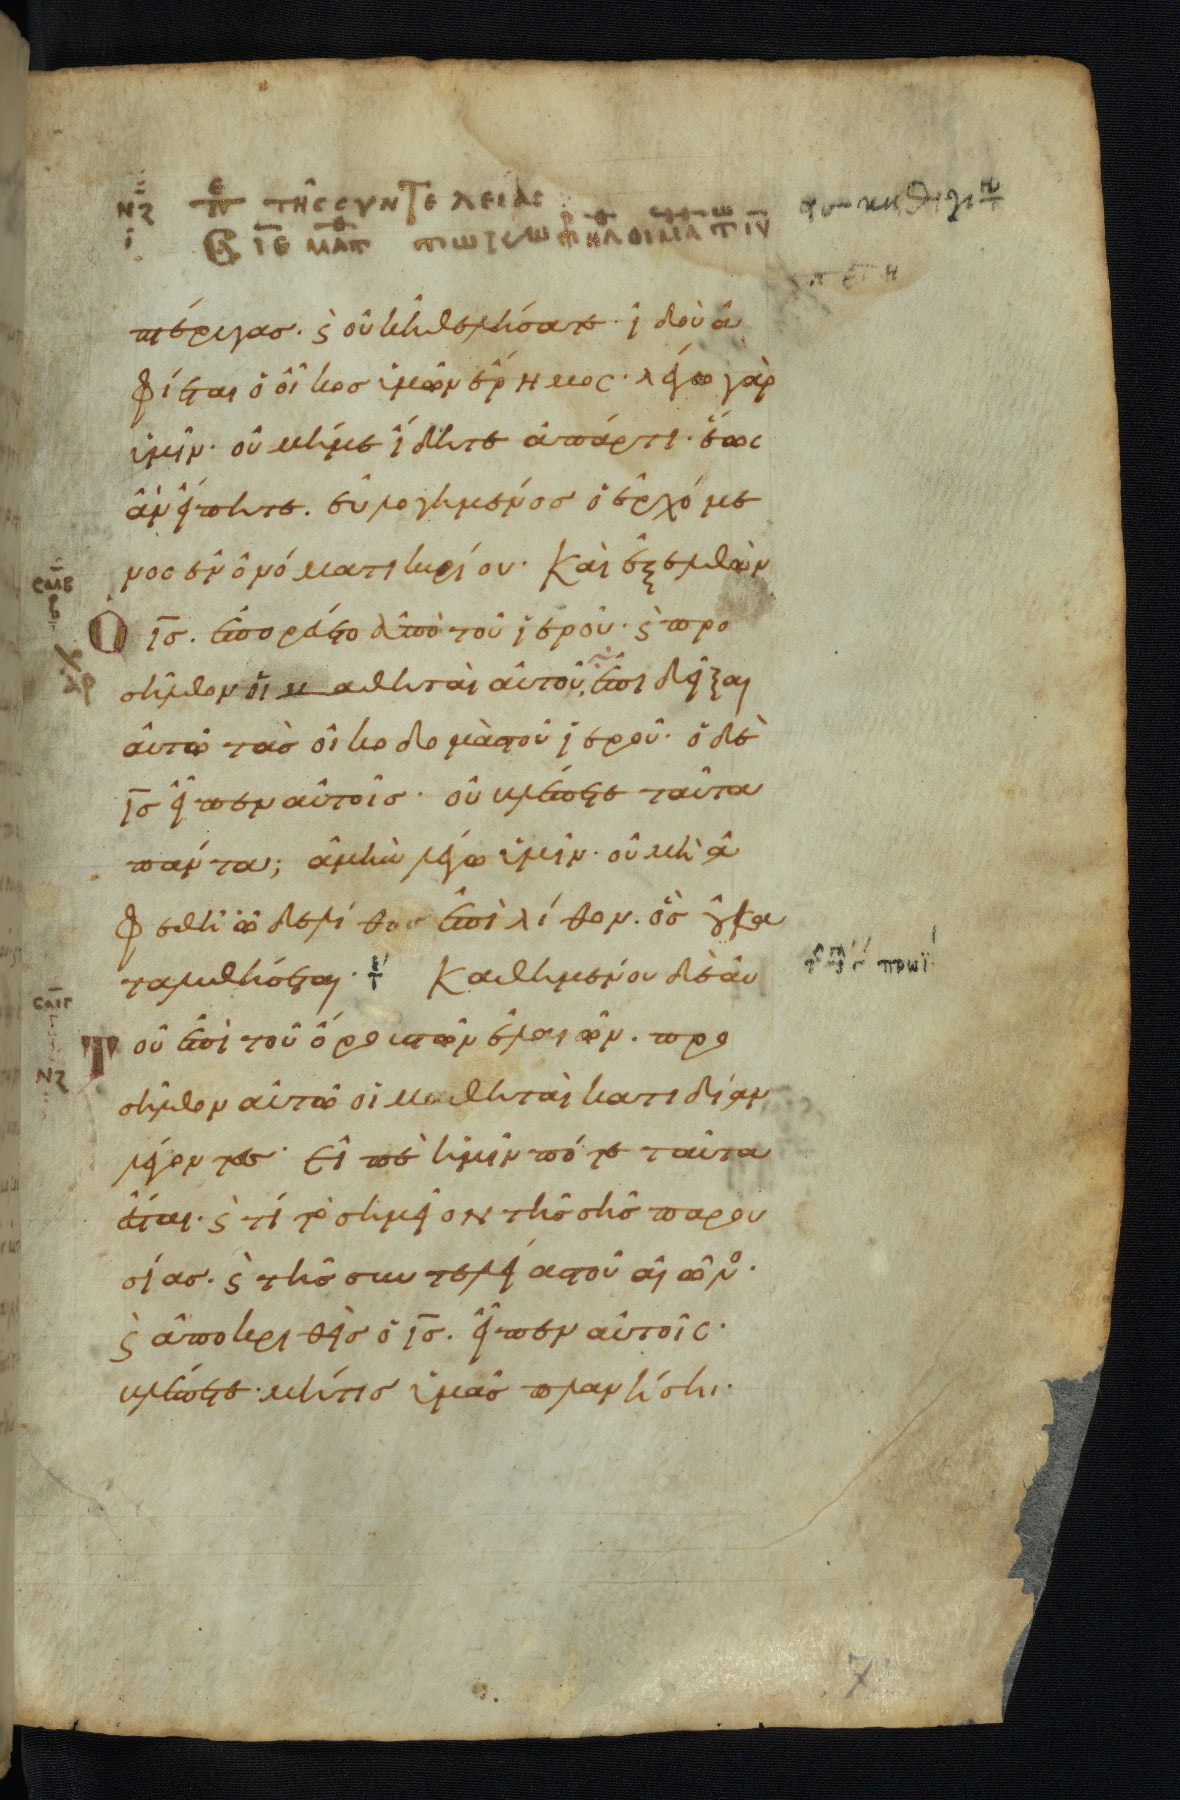 ΝΖ περὶ ΤΗϹ ϹΥΝΤΕΛΕΙΑϹ
πτέρυγας. ϗ οὐκ ἠθελήσατε· ἰδοὺ ἀ
φίεται ὁ οἶκος ὑμῶν ἔρημος· λέγω γὰρ
ὑμῖν· οὐ μή με ἴδητε ἀπάρτι· ἕως
ἂν εἴπητε. εὐλογημένος ὁ ἐρχόμε
νος ἐν ὀνόματι κυρίου· Καὶ ἐξελθὼν
ϹΜΒ
Ὁ ι̅ς̅. ἐπορεύετο ἀπὸ τοῦ ἱεροῦ· ϗ προ
σῆλθον οἱ μαθηταὶ αὐτοῦ, ἐπιδεῖξαι
αὐτῶ τὰς οἰκοδομὰς τοῦ ἱεροῦ· ὁ δὲ
ι̅ς̅ εἶπεν αὐτοῖς· οὐ βλέπετε ταῦτα
πάντα; ἀμὴν λέγω ὑμῖν· οὐ μὴ ἀ
φεθῆ ὧδε λίθος ἐπὶ λίθον. ὃς οὐ κα
ταλυθήσεται· Καθημένου δὲ αὐ
πρωΐ
ϹΜΓ
Τοῦ ἐπὶ τοῦ ὄρους τῶν ἐλαιῶν. προ
ΝΖ
σῆλθον αὐτῶ οἱ μαθηταὶ κατιδίαν
λέγοντες· Εἰπὲ ἡμῖν πότε ταῦτα
ἔσται· ϗ τί τὸ σημεῖον τῆς σῆς παρου
σίας· ϗ τῆς συντελείας τοῦ αἰῶνο·
ϗ ἀποκριθεὶς ὁ ι̅ς̅. εἶπεν αὐτοῖς·
βλέπετε· μή τις ὑμᾶς πλανήση·
7